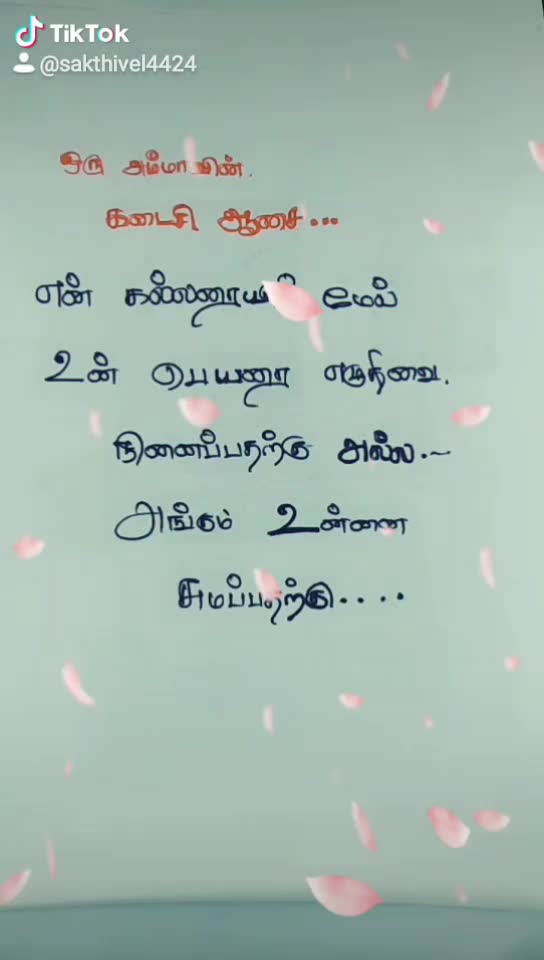 TikTok
@sakthivel4424
ஒரு அம்மாவின்.
கடைசி ஆசை...
என் கல்லறையின் மேல்
உன் பெயரை எழுதிவை.
நினைப்பதற்கு அல்ல.~
அங்கும் உன்னை
சுமப்பதற்கு....